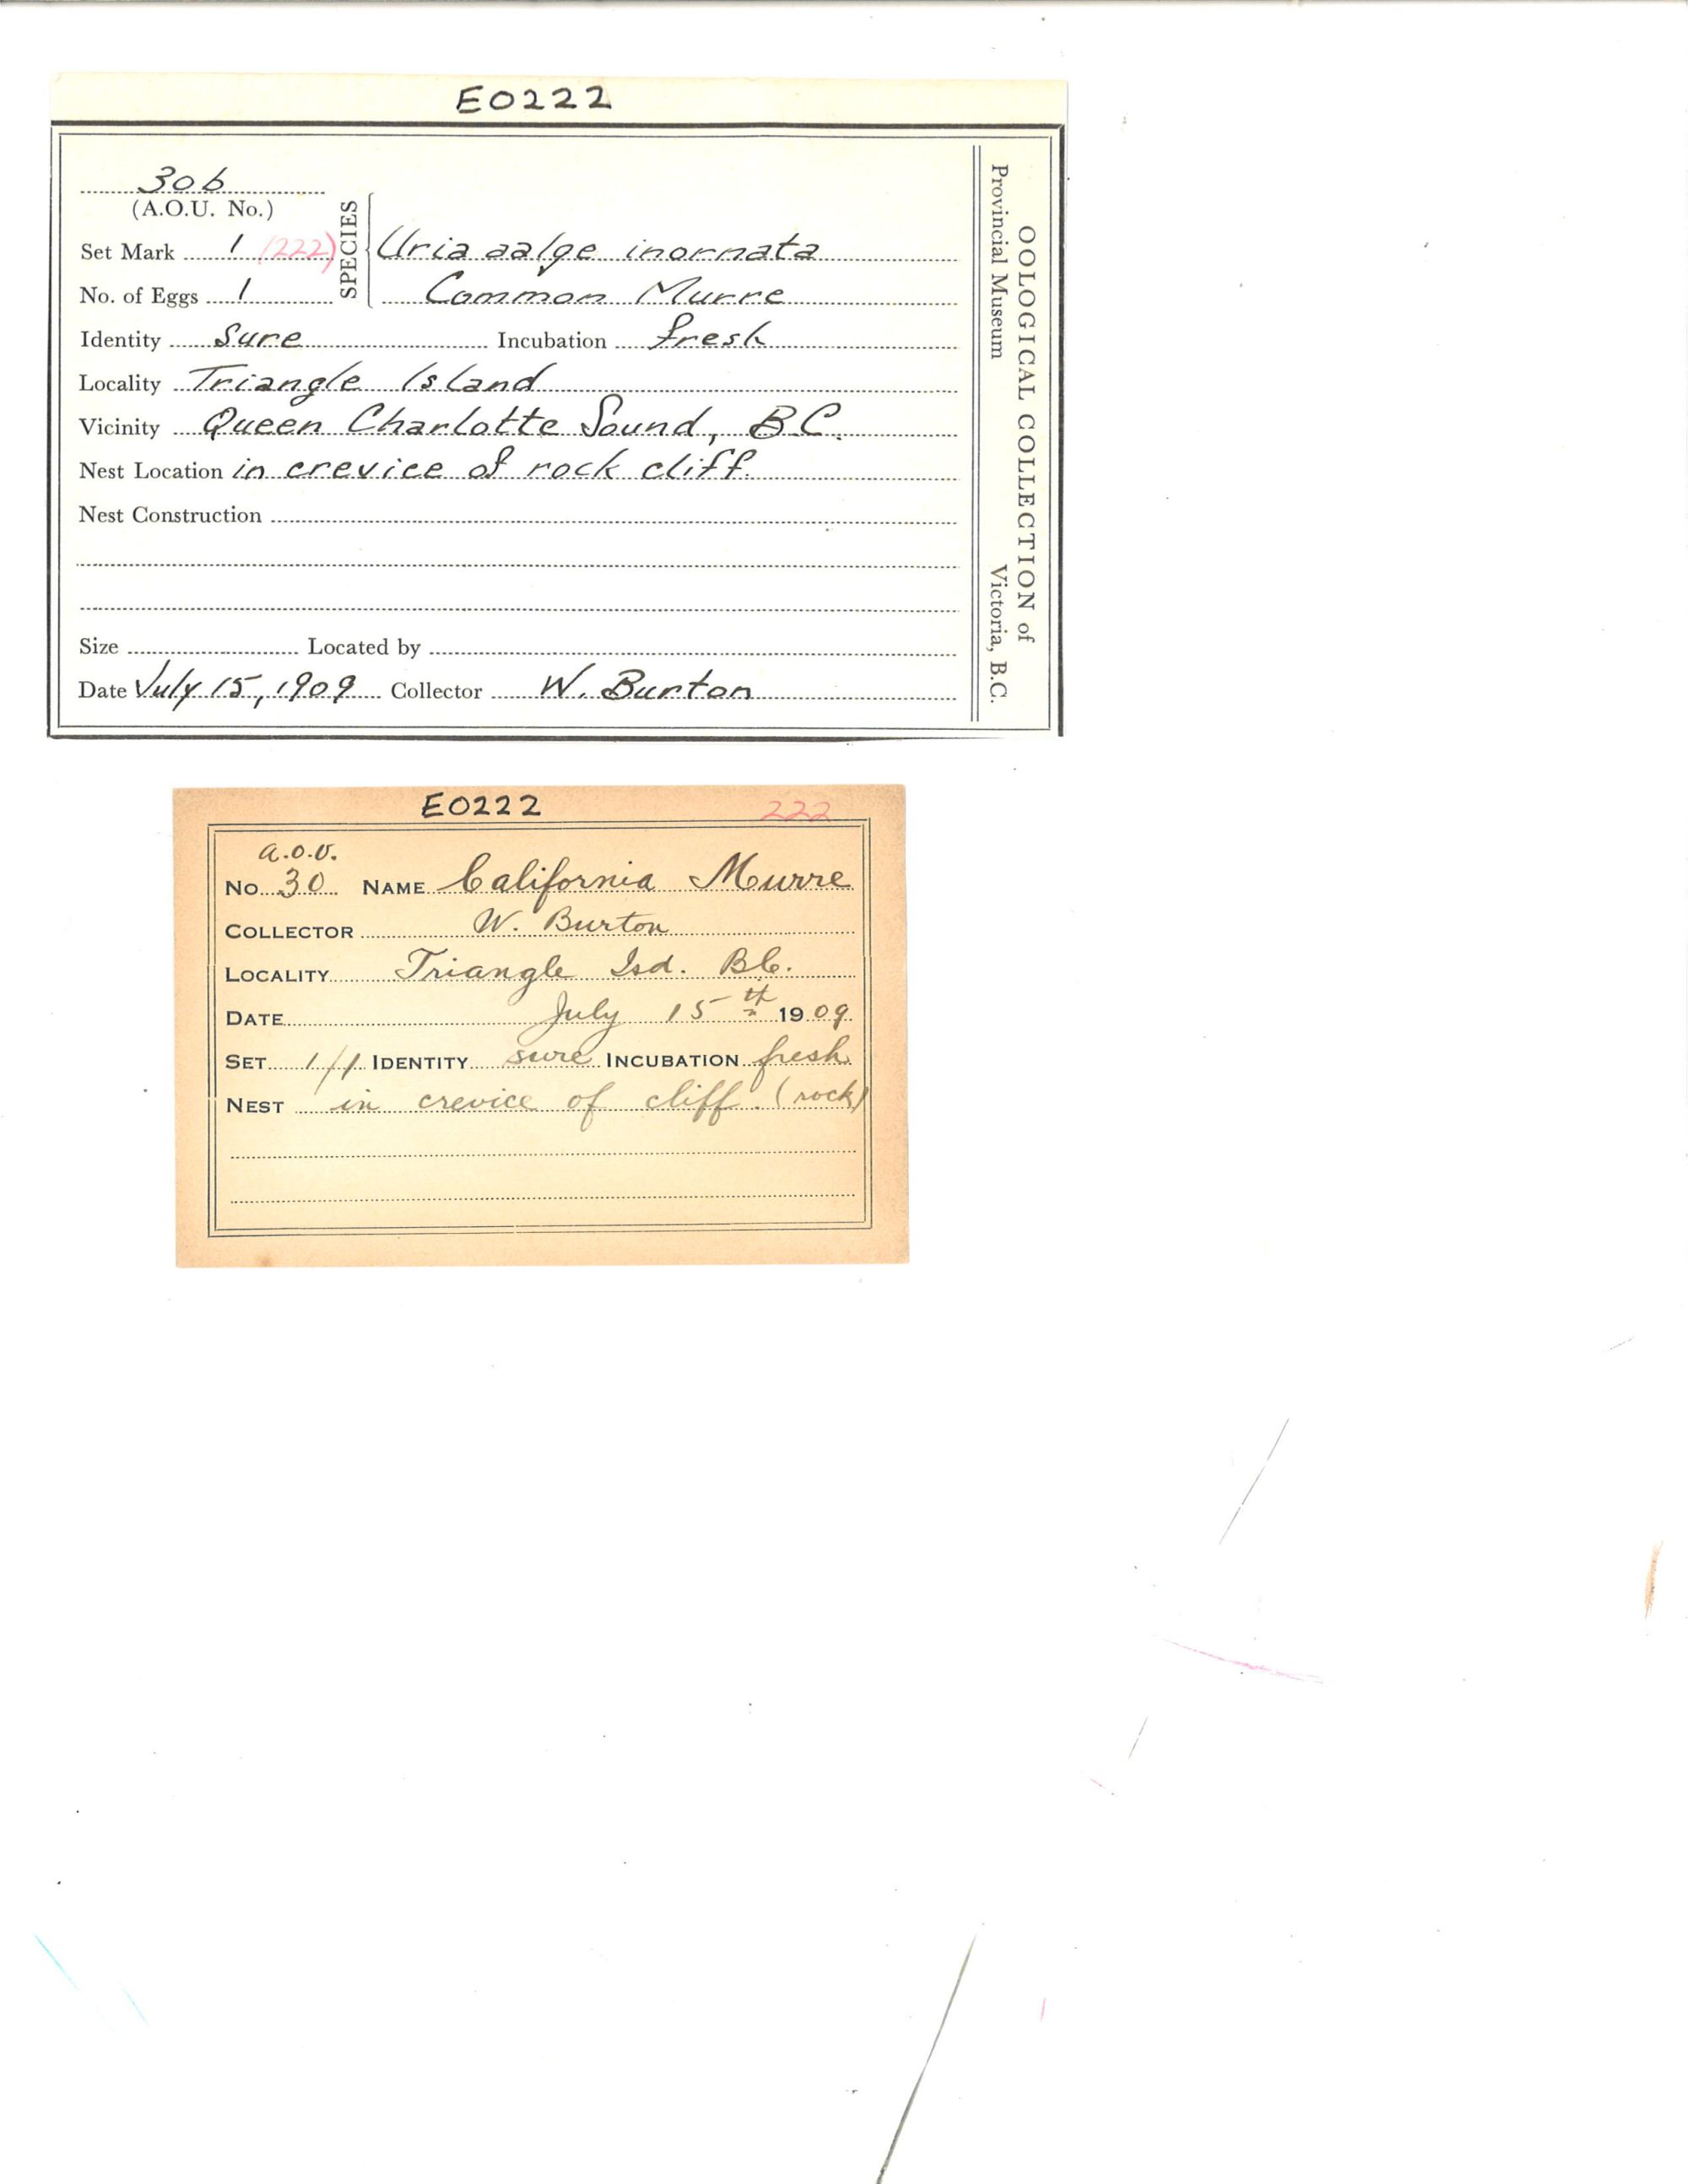 E0222
30b
(A.O.U. No.)
SPECIES
Set Mark 1 (222) Uria aalge inornata
No. of Eggs 1 Common Murre
Identity Sure Incubation fresh
Locality Triangle Island
Vicinity Queen Charlotte Sound, B.C.
Nest Location in crevice of rock cliff.
Nest Construction
Size Located by
Date July 15, 1909 Collector W. Burton
OOLOGICAL COLLECTION of
Provincial Museum Victoria, B.C.
E0222 222
a.o.u.
No 30 NAME California Murre
COLLECTOR W. Burton
LOCALITY Triangle Isd. BC.
DATE July 15th 1909
SET 1/1 IDENTITY sure INCUBATION fresh
NEST in crevice of cliff. (rock)